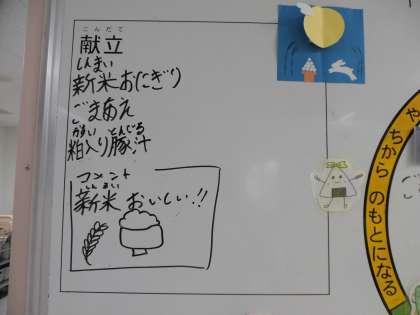 こんだて
献立
しんまい
新米おにぎり
ごまあえ
かすい とんじる
粕入り豚汁
コメント
しんまい
新米 おいしい!!
ちから のもとになる